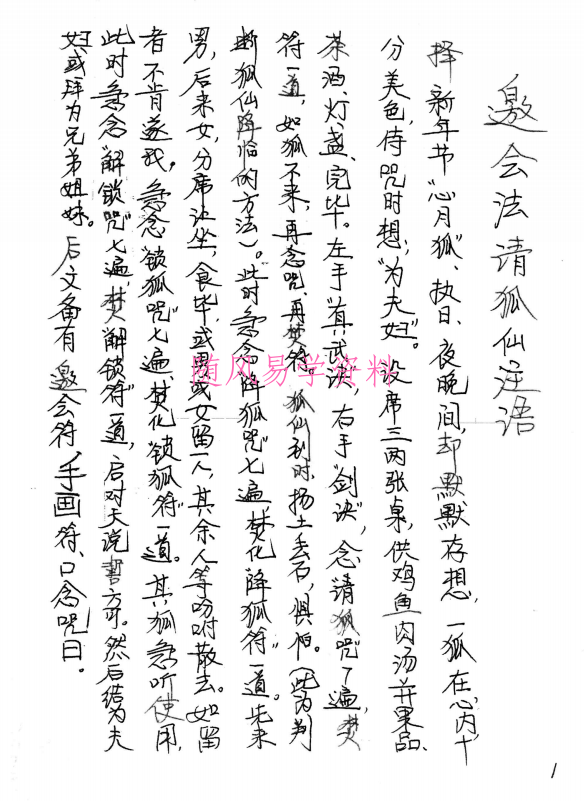 邀会法请狐仙注语
择新年节“心月狐”、执日、夜晚间，却默默存想，一狐在心内，十
分美色，侍咒时想；“为夫妇”。设席三两张桌，供鸡鱼肉汤并果品、
茶酒、灯、盏、完毕。左手“真武诀”，右手“剑诀”，念“请狐咒”7遍，焚
符一道，如狐不来，再念咒、再焚符。狐仙到时，扬土丢石，惧怕。（此为判
断狐仙降临的方法）。此时急念“降狐咒”七遍，焚化“降狐符”一道。先来
男，后来女，分席让坐，食毕，或男或女留一人，其余人等吩咐散去。如留
者不肯遂我，急念“锁狐咒”七遍、焚化“锁狐符”一道。其狐急听使用，
此时急念“解锁咒”七遍，焚“解锁符”一道，启对天说誓方可。然后结为夫
妇或拜为兄弟姐妹。后文备有邀会符，手画符、口念咒曰。
随风易学资料
1